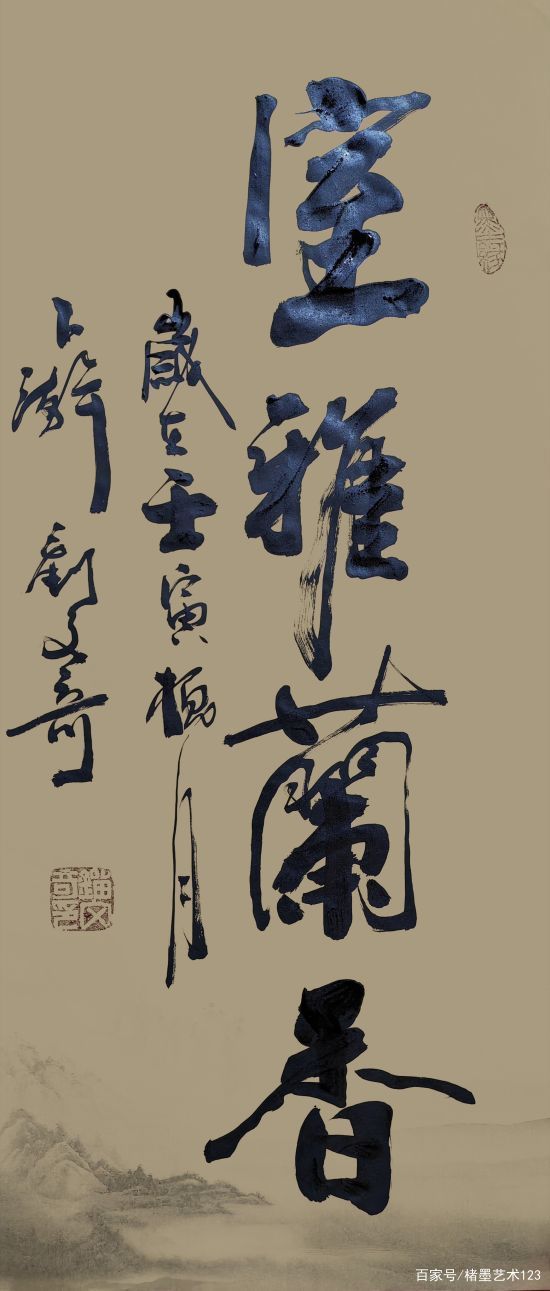 室雅蘭香
歲在壬寅月
劉文奇
百家号/楮墨艺术123